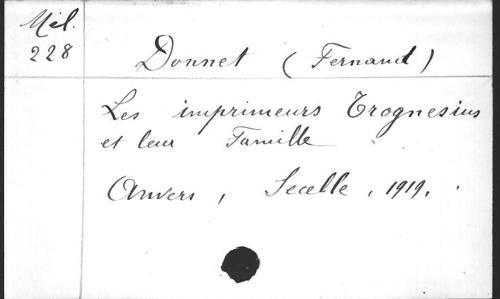 Mél.
228
Donnet (Fernand)
Les imprimeurs Trognesius
et leur Famille
Anvers, Secelle, 1919.